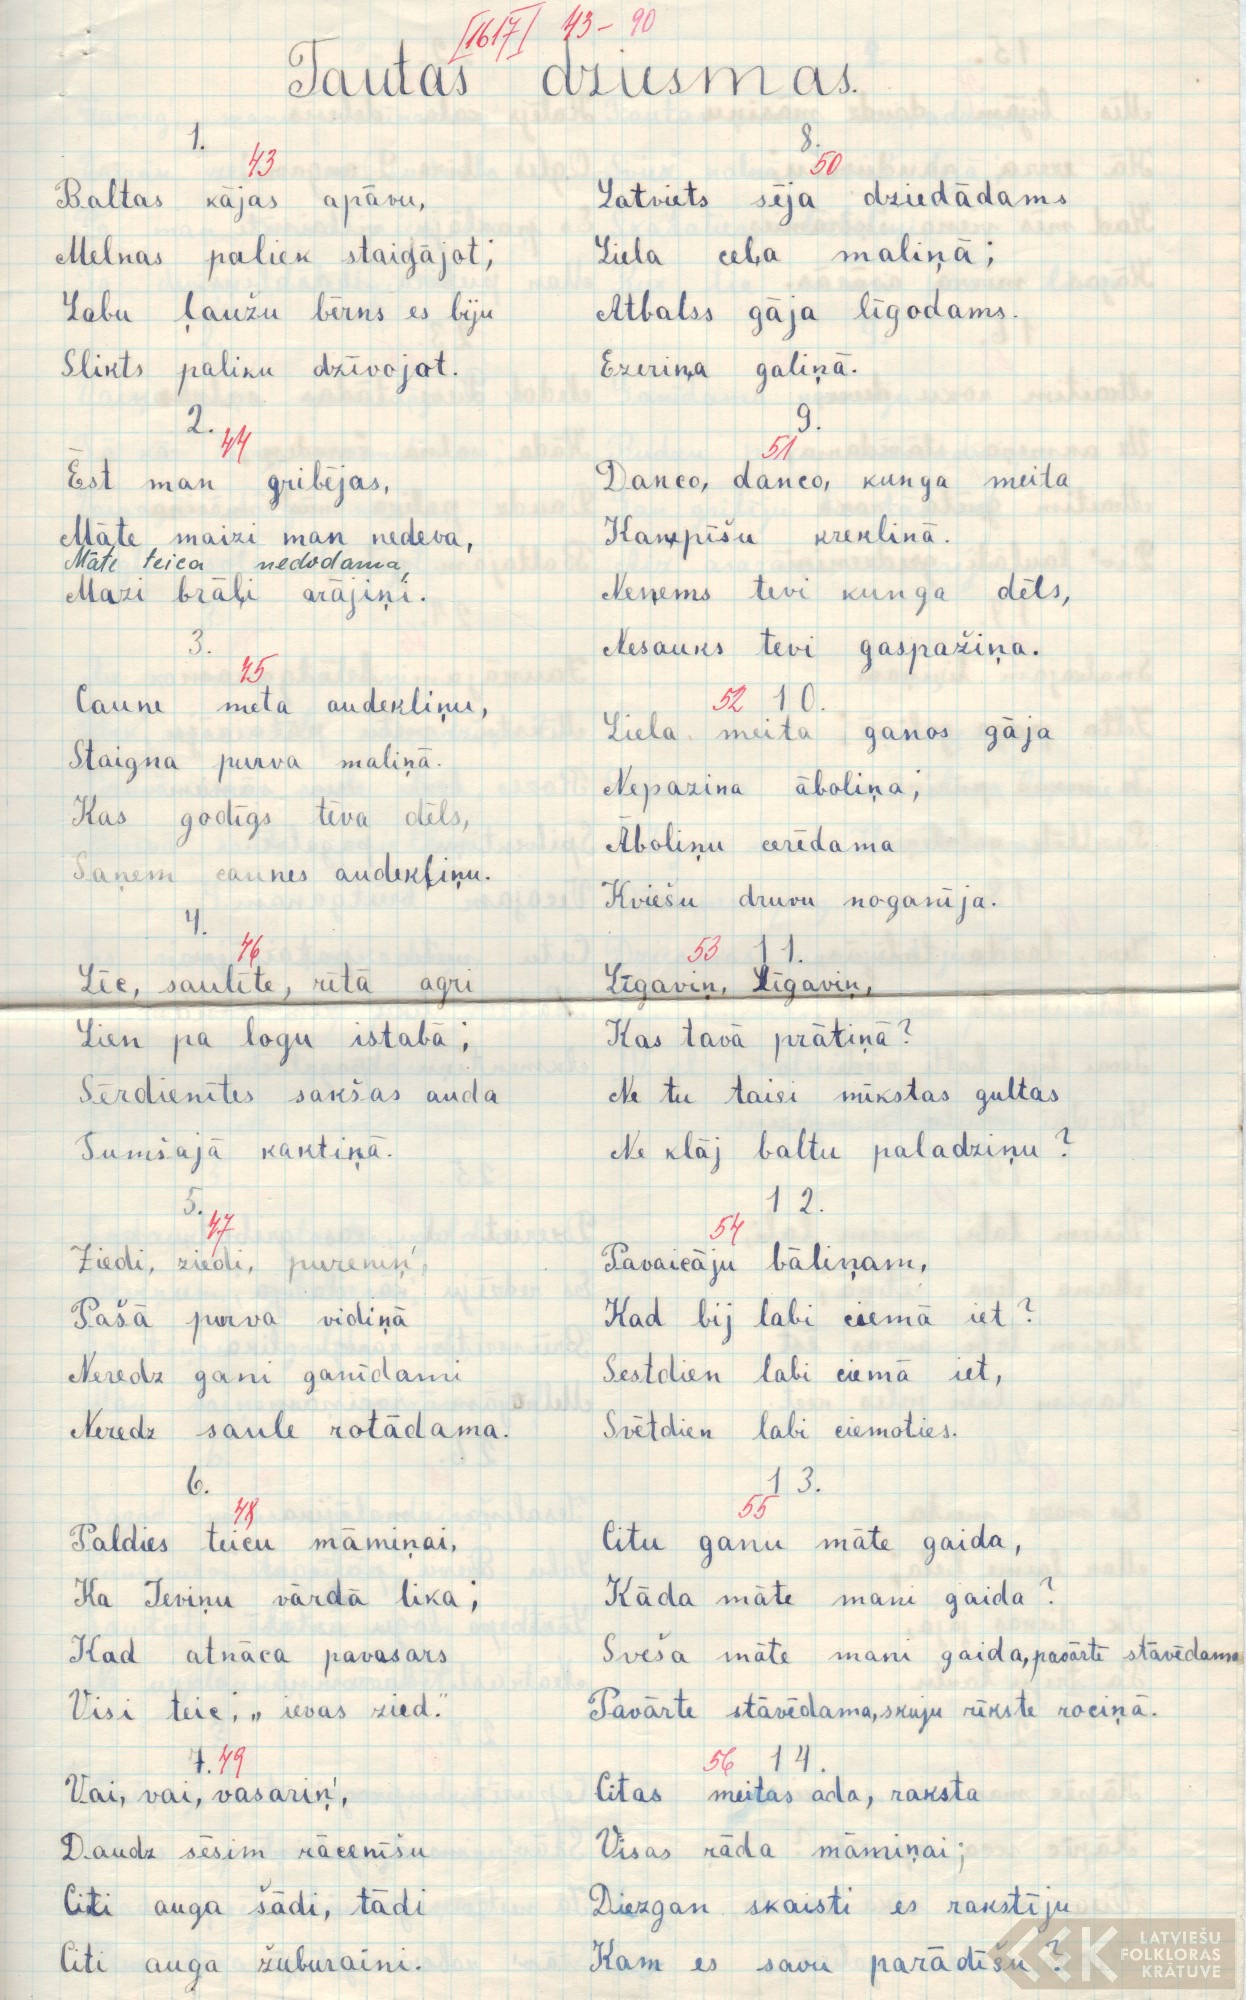 [1617] 43-90
Tautas dziesmas.
1.
43
Baltas kājas apāvu,
Melnas paliek staigājot;
Labu ļaužu bērns es biju
Slikts paliku dzīvojot.
2.
44
Ēst man gribējas,
Māte maizi man nedeva,
Māte teica nedodama,
Mazi brāļi arājiņi.
3.
45
Caune meta audekliņu,
Staigna purva maliņā.
Kas godīgs tēva dēls,
Saņem caunes audekliņu.
4.
46
Lēc, saulīte, rītā agri
Lien pa logu istabā;
Sērdienītes sakšas auda
Tumšajā kaktiņā.
5.
47
Ziedi, ziedi, pureniņ',
Pašā purva vidiņā
Neredz gani ganīdami
Neredz saule rotādama.
6.
48
Paldies teicu māmiņai,
Ka Ieviņu vārdā lika;
Kad atnāca pavasars
Visi teic; „ ievas zied."
7. 49
Vai, vai, vasariņ',
Daudz sēsim rācenīšu
Citi auga šādi, tādi
Citi auga žuburaini.
8.
50
Latviets sēja dziedādams
Liela ceļa maliņā;
Atbalss gāja līgodams.
Ezeriņa galiņā.
9.
51
Danco, danco, kunga meita
Kankpīšu krekliņā.
Neņems tevi kunga dēls,
Nesauks tevi gaspažiņa.
52 10.
Liela meita ganos gāja
Nepazina āboliņa;
Āboliņu cerēdama
Kviešu druvu noganīja.
53 11.
Līgaviņ, Līgaviņ,
Kas tavā prātiņā?
Ne tu taisi mīkstas gultas
Ne klāj baltu paladziņu?
12.
54
Pavaicāju bāliņam,
Kad bij labi ciemā iet?
Sestdien labi ciemā iet,
Svētdien labi ciemoties.
13.
55
Citu ganu māte gaida,
Kāda māte mani gaida?
Sveša māte mani gaida, pavārtē stāvēdama
Pavārte stāvēdama, skuju rīkste rociņā.
56 14.
Citas meitas ada, raksta
Visas rāda māmiņai;
Diezgan skaisti es rakstīju
Kam es savu parādīšu?
LATVIEŠU
FOLKLORAS
KRĀTUVE